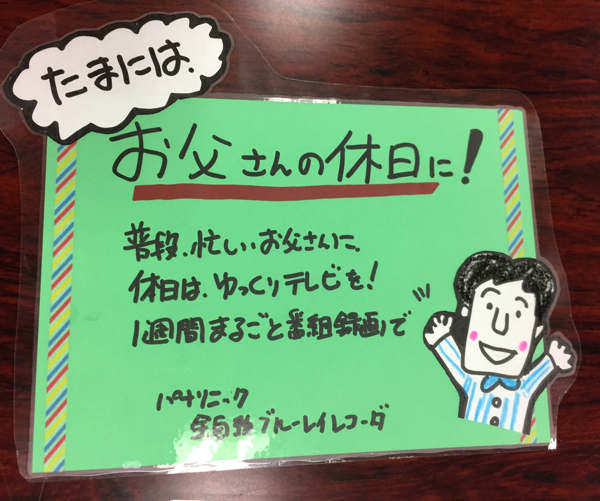 たまには、
お父さんの休日に!
普段、忙しいお父さんに、
休日は、ゆっくりテレビを!
1週間まるごと番組録画で
パナソニック
全自動ブルーレイレコーダ